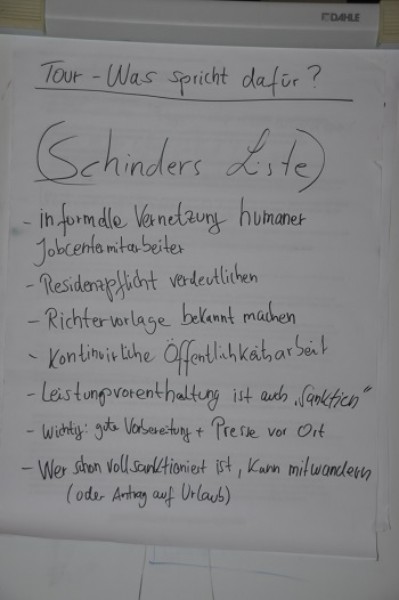 DAHLE
Tour - Was spricht dafür?
(Schinders Liste)
- informelle Vernetzung humaner
Jobcentermitarbeiter
- Residenzpflicht verdeutlichen
- Richtervorlage bekannt machen
- Kontinuirliche Öffentlichkeitsarbeit
- Leistungvorenthaltung ist auch "Sanktion"
- Wichtig: gute Vorbereitung + Presse vor Ort
- Wer schon vollsanktioniert ist, kann mitwandern
(oder Antrag auf Urlaub)